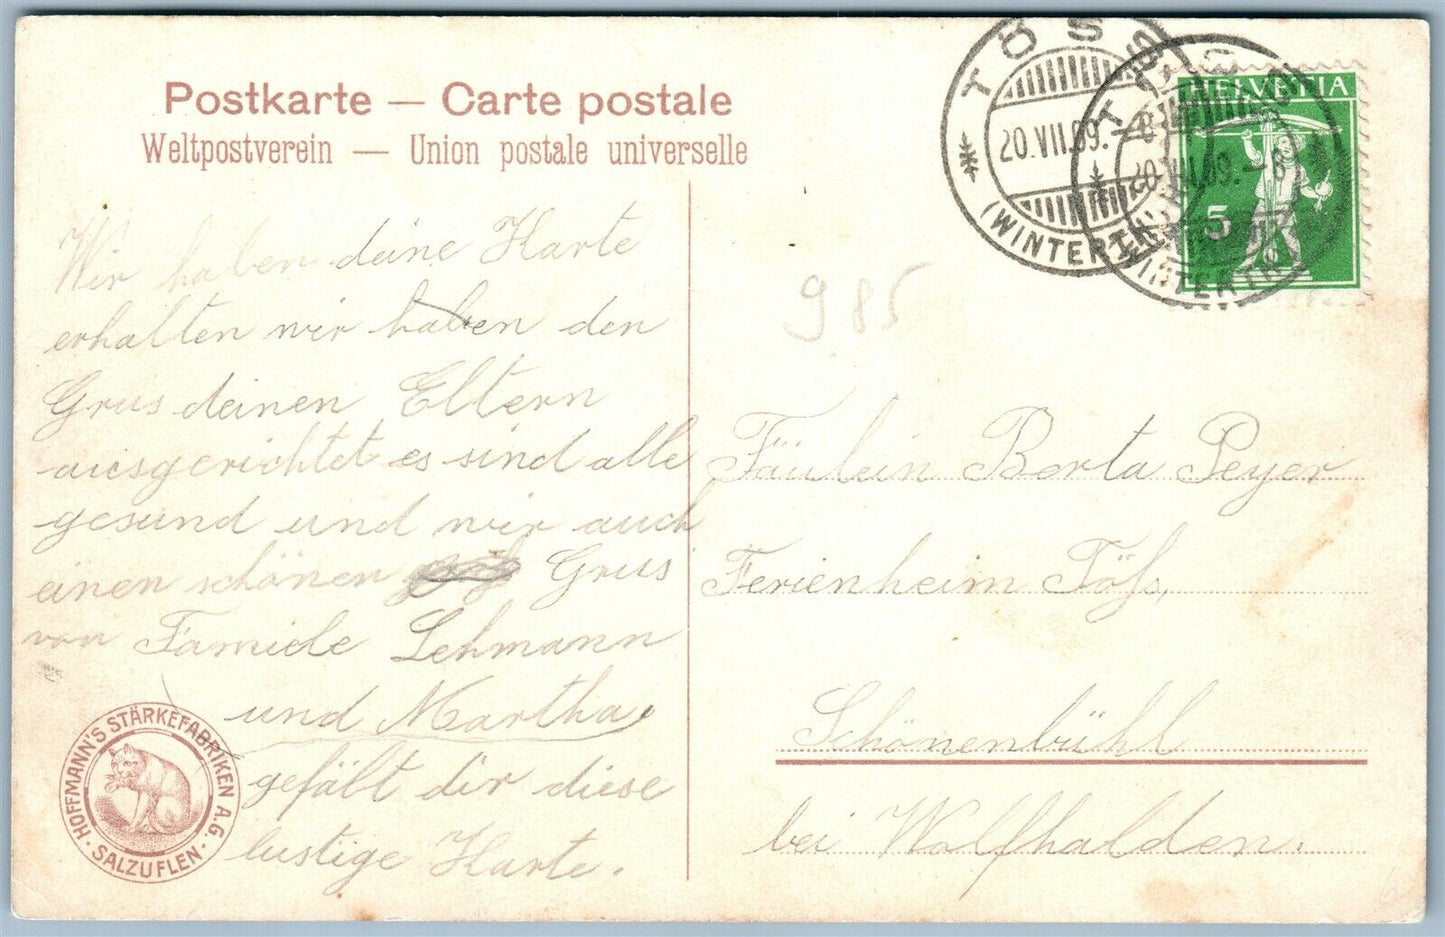 Postkarte — Carte postale
Weltpostverein — Union postale universelle
TÖSS
20.VII.09.
(WINTERTHUR)
TÖSS
20.VII.09. - 8
(WINTERTHUR)
HELVETIA
5
985
Wir haben deine Karte
erhalten wir haben den
Grus deinen Eltern
ausgerichtet es sind alle
gesund und wir auch
einen schönen Grus
von Famiele Lehmann
und Martha,
gefält dir diese
lustige Karte.
Fäulein Berta Peyer
Ferienheim Töſs,
Schönenbühl
bei Wolfhalden.
HOFFMANN'S STÄRKEFABRIKEN A.G. · SALZUFLEN ·